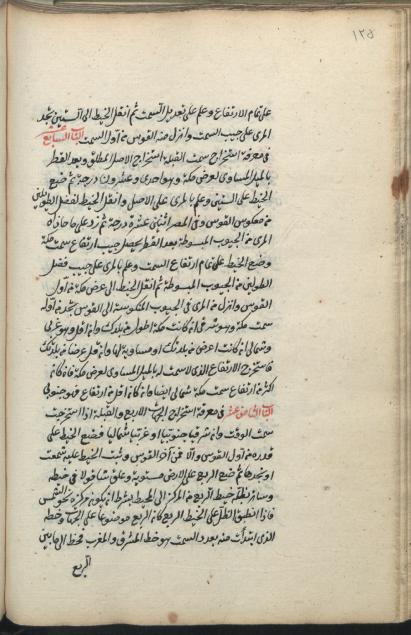 ١٢٥
على تمام الارتفاع وعلم على تعديل السمت ثم انقل الخيط الى الستيني تجد
المرى على جيب السمت وانزل منه القوس من اول السمت الباب السابع عشر
في معرفة استخراج سمت القبلة استخراج الاصل المطلق وبعد القطر
بالميل المساوى لعرض مكة وهو احدى وعشرون درجة ثم ضع
الخيط على الستيني وعلم بالمرى على الاصل وانقل الخيط لفضل الطولين
من معكوس القوس وفى المصر اثنتى عشرة درجة ثم زد على ما حاذاه
المرى من الجيوب المبسوطة بعد القطر يحصل جيب ارتفاع سمت مكة
وضع الخيط على تمام ارتفاع السمت وعلم بالمرى على جيب فضل
الطولين من الجيوب المبسوطة ثم انقل الخيط الى عرض مكة من اول
القوس وانزل من المرى فى الجيوب المنكوسة الى القوس تجد من اوله
سمت مكة وهو شرقى ان كانت مكة اطول من بلدك وان اقل وهو غربى
وشمالى ان كانت اعرض من بلدتك او مساوية لها وان اقل عرضا من بلدتك
فاستخرج الارتفاع الذى لا سمت له بالميل المساوى لعرض مكة فان كان
اكثر من ارتفاع سمت مكة شمالى ايضا وان كان اقل من ارتفاع فهو جنوبى
الباب الثامن عشر فى معرفة استخراج الجهات الاربع والقبلة اذا استخرجت
سمت الوقت وان شرقيا جنوبيا او غربيا شماليا فضع الخيط على
قدره من اول القوس والا فمن اخر القوس وثبت الخيط عليه بشمعة
او نحوها ثم ضع الربع على الارض مستوية وعلق شاقولا فى خيطه
وسامت بظله خيط الربع من المركز الى المحيط بشرط ان يكون مركزه نحو الشمس
فاذا انطبق الظل على الخيط الربع كان الربع موضوعا على الجهات وخطه
الذى ابتدأت منه بعدد السمت هو خط المشرق والمغرب فخط الى جانبى
الربع